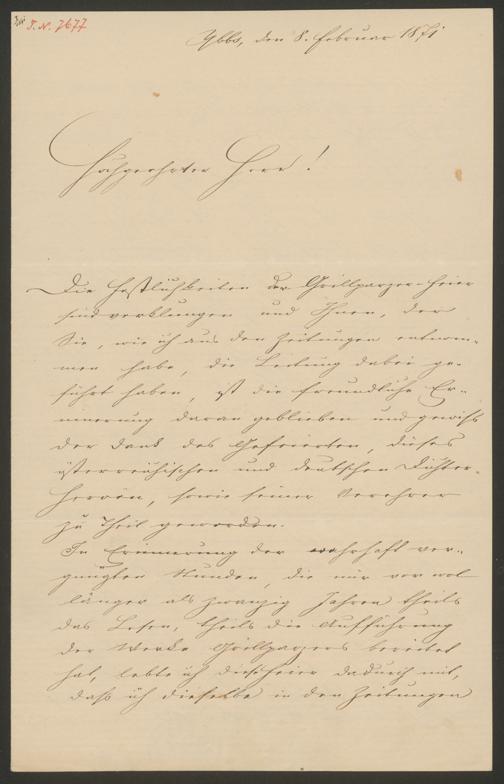 I. N. 7677
Ybbs, den 8. Februar 1871
Hochgeehrter Herr!
Die Festlichkeiten der Grillparzer-Feier
sind verklungen und Ihnen, der
Sie, wie ich aus den Zeitungen entnom-
men habe, die Leitung dabei ge-
führt haben, ist die freundliche Er-
innerung daran geblieben und gewiß
der Dank des Gefeierten, dieses
österreichischen und deutschen Dichter-
Heroen, sowie seiner Verehrer
zu Theil geworden.
In Erinnerung der wahrhaft ver-
gnügten Stunden, die mir vor wol
länger als zwanzig Jahren theils
das Lesen, theils die Aufführung
der Werke Grillparzers bereitet
hat, lebte ich diese Feier dadurch mit,
daß ich dieselbe in den Zeitungen